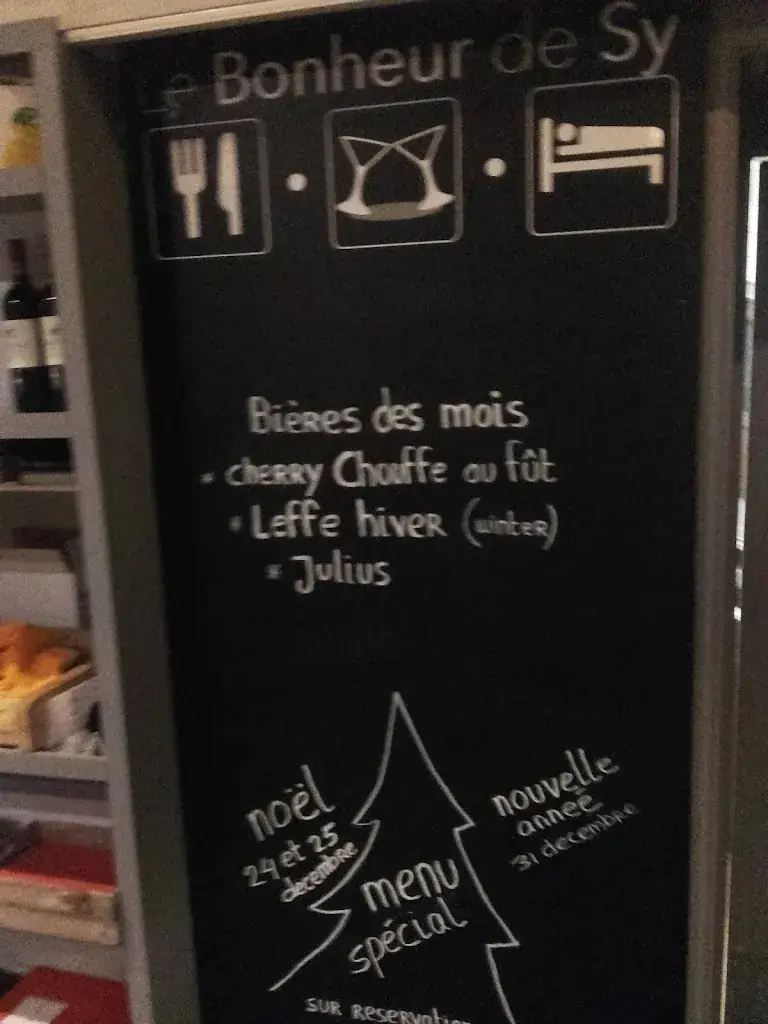 Le Bonheur de Sy
Bières des mois
* cherry Chouffe au fût
* Leffe hiver (winter)
* Julius
noël
24 et 25
décembre
nouvelle
année
31 décembre
menu
spécial
SUR RESERVATION